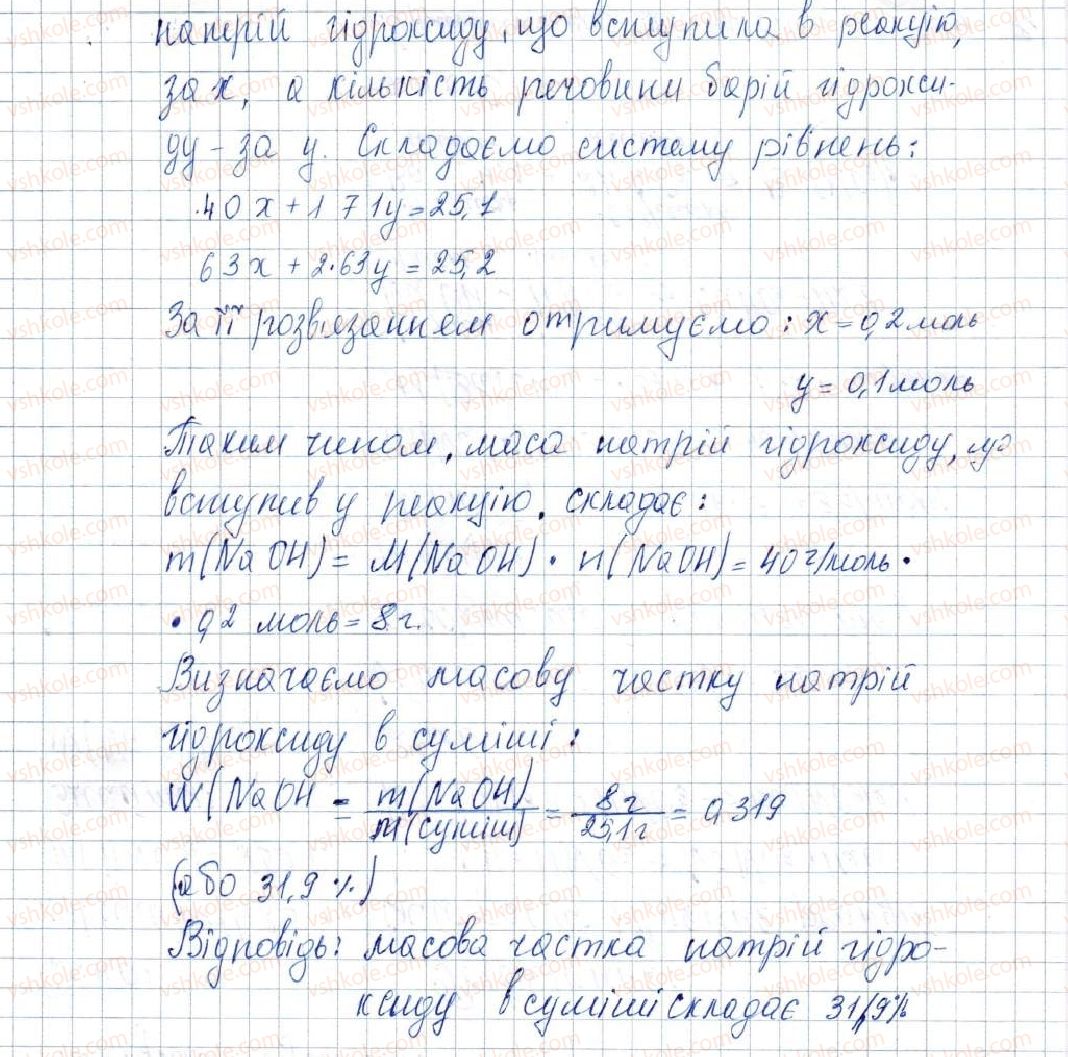 натрій гідроксиду, що вступила в реакцію,
за x, а кількість речовини барій гідрокси-
ду - за y. Складаємо систему рівнень:
40x+171y=25,1
63x+2·63y=25,2
За її розв'язанням отримуємо: x=0,2 моль
y=0,1 моль
Таким чином, маса натрій гідроксиду, що
вступив у реакцію, складає:
m(NaOH)= M(NaOH)· n(NaOH)= 40 г/моль ·
· 0,2 моль=8 г.
Визначаємо масову частку натрій
гідроксиду в суміші:
W(NaOH = m(NaOH)/m(суміші) = 8 г/25,1 г = 0,319
(або 31,9 %)
Відповідь: масова частка натрій гідро-
ксиду в суміші складає 31,9%